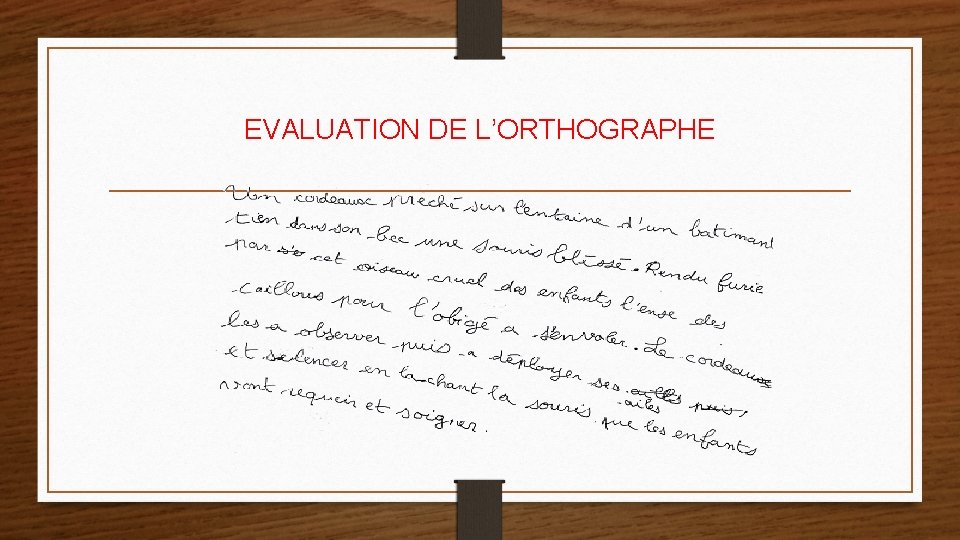 EVALUATION DE L'ORTHOGRAPHE
Un cordeaux preché sur l'entaine d'un batimant
tien dans son bec une souris bléssé. Rendu furie
par s'o cet oiseau cruel des enfants l'ense des
cailloux pour l'obigé a s'envoler. Le cordeaux
les a observer puis a déployer ses ailles puis,
ailes
et se lences en la chant la souris que les enfants
vont requeir et soigner.